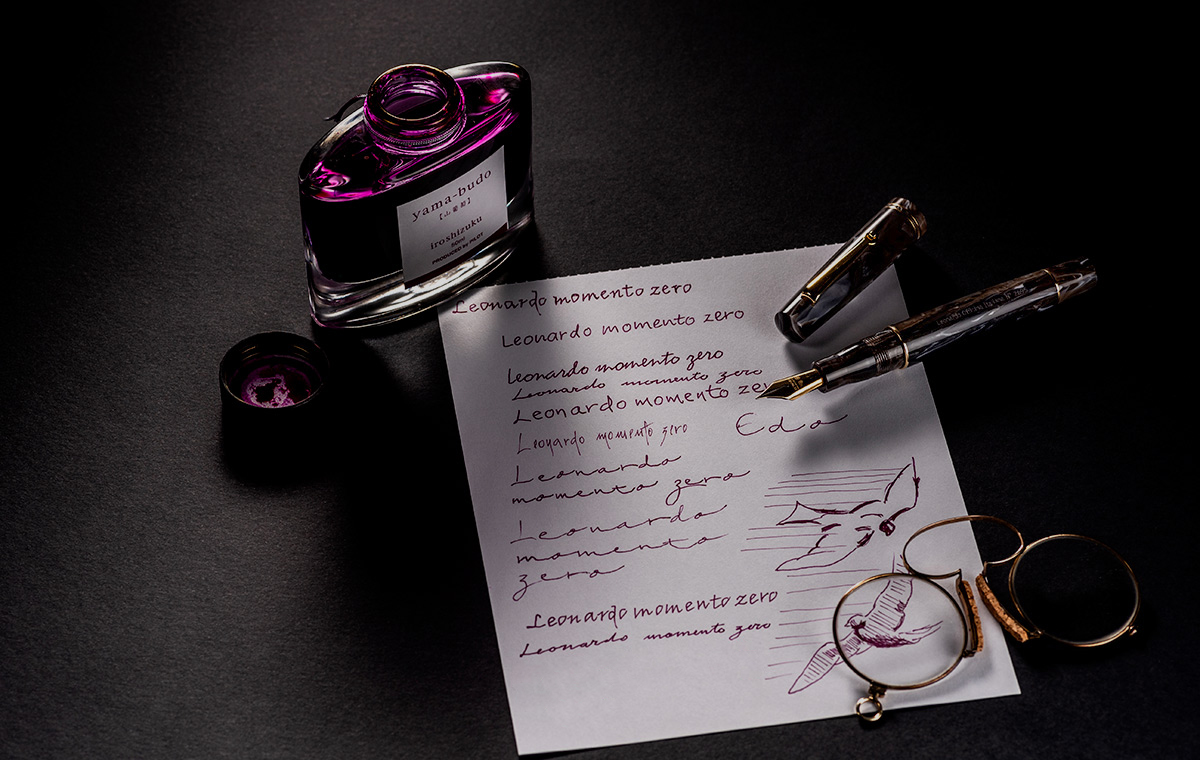 yama-budo
【山葡萄】
iroshizuku
50ml
PRODUCED by PILOT
Leonardo momento zero
Leonardo momento zero
leonardo momento zero
Leonardo momento zero
Leonardo momento zero
Leonardo momento zero
Edo
Leonardo
momento zero
Leonardo
momento
zero
Leonardo momento zero
Leonardo momento zero